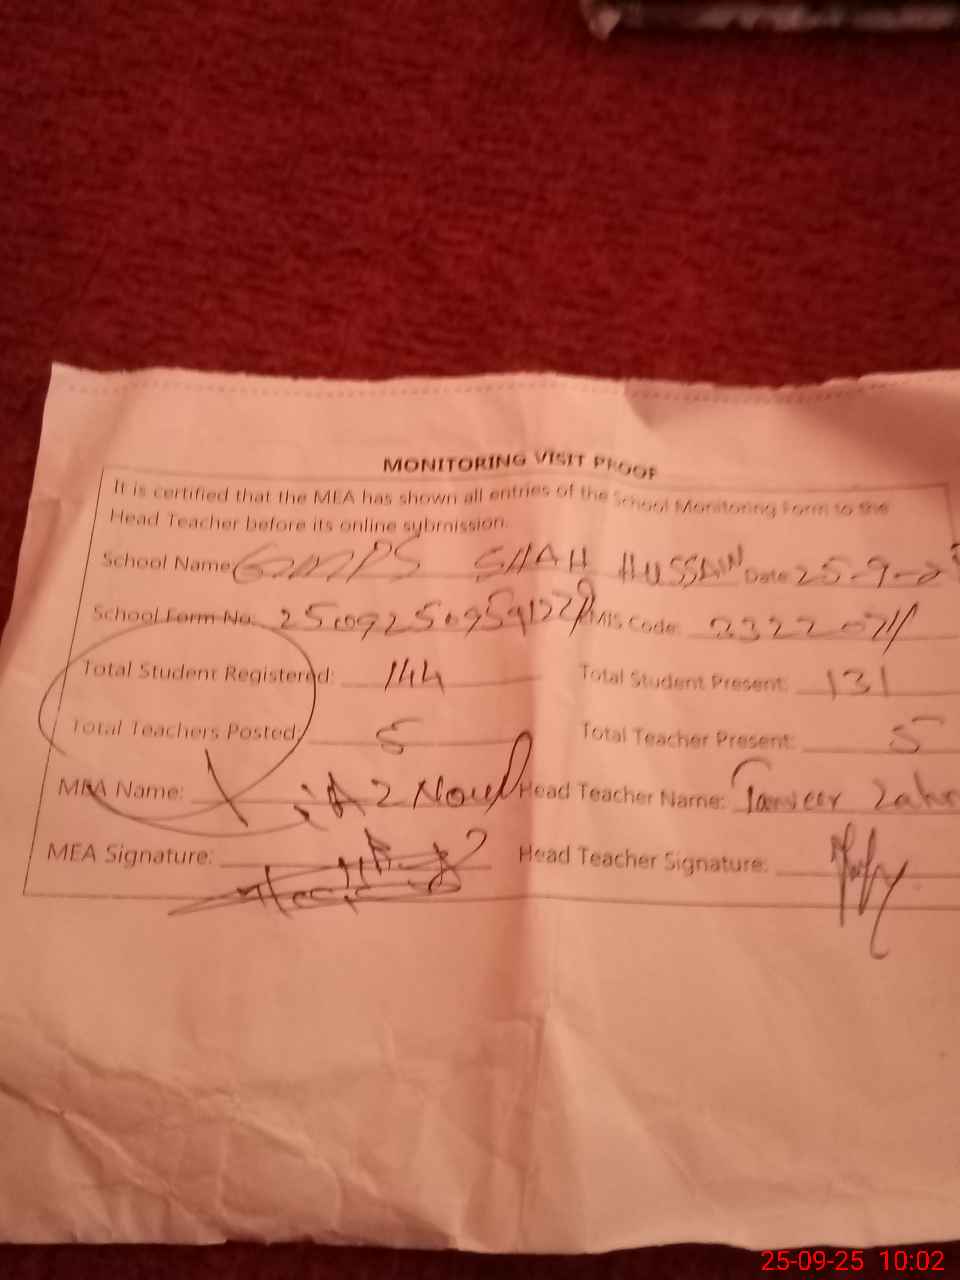 MONITORING VISIT PROOF
It is certified that the MEA has shown all entries of the School Monitoring Form to the
Head Teacher before its online submission.
School Name: GMPS SHAH HUSSAIN Date: 25-9-
School Form No: MIS Code:
Total Student Registered: 144 Total Student Present: 131
Total Teachers Posted: 5 Total Teacher Present: 5
MEA Name: Head Teacher Name: Tanveer
MEA Signature: Head Teacher Signature:
25-09-25 10:02